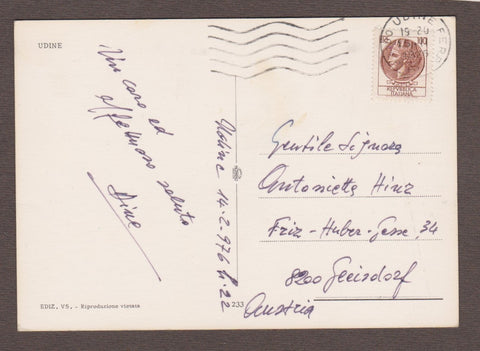 UDINE
Un caro ed
affettuoso saluto
Dine
Udine 14-2-976 h. 22
UDINE FERR
19-20
100
Gentile Signora
Antonietta Hinz
Friz-Huber-Gasse, 34
8200 Gleisdorf
Austria
EDIZ. VS. - Riproduzione vietata
233